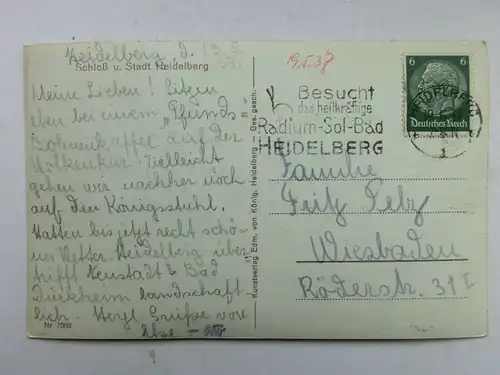 Heidelberg, d. 19.5.
Schloß u. Stadt Heidelberg
Meine Lieben! Sitzen
eben bei einem "Pfunds
Bohnenkaffee auf der
Molkenkur. Vielleicht
gehen wir nachher noch
auf den Königsstuhl.
Hatten bis jetzt recht schö-
nes Wetter. Heidelberg über-
trifft Neustadt & Bad
Dürkheim landschaft-
lich. Herzl. Grüße von
Else - Otto
Nr 7502
Kunstverlag Edm. von König, Heidelberg — Ges. gesch.
19.5.38
Besucht
das heilkräftige
Radium-Sol-Bad
HEIDELBERG
6 6
Deutsches Reich
HEIDELBERG
1
Familie
Fritz Pelz
Wiesbaden
Röderstr. 31 I